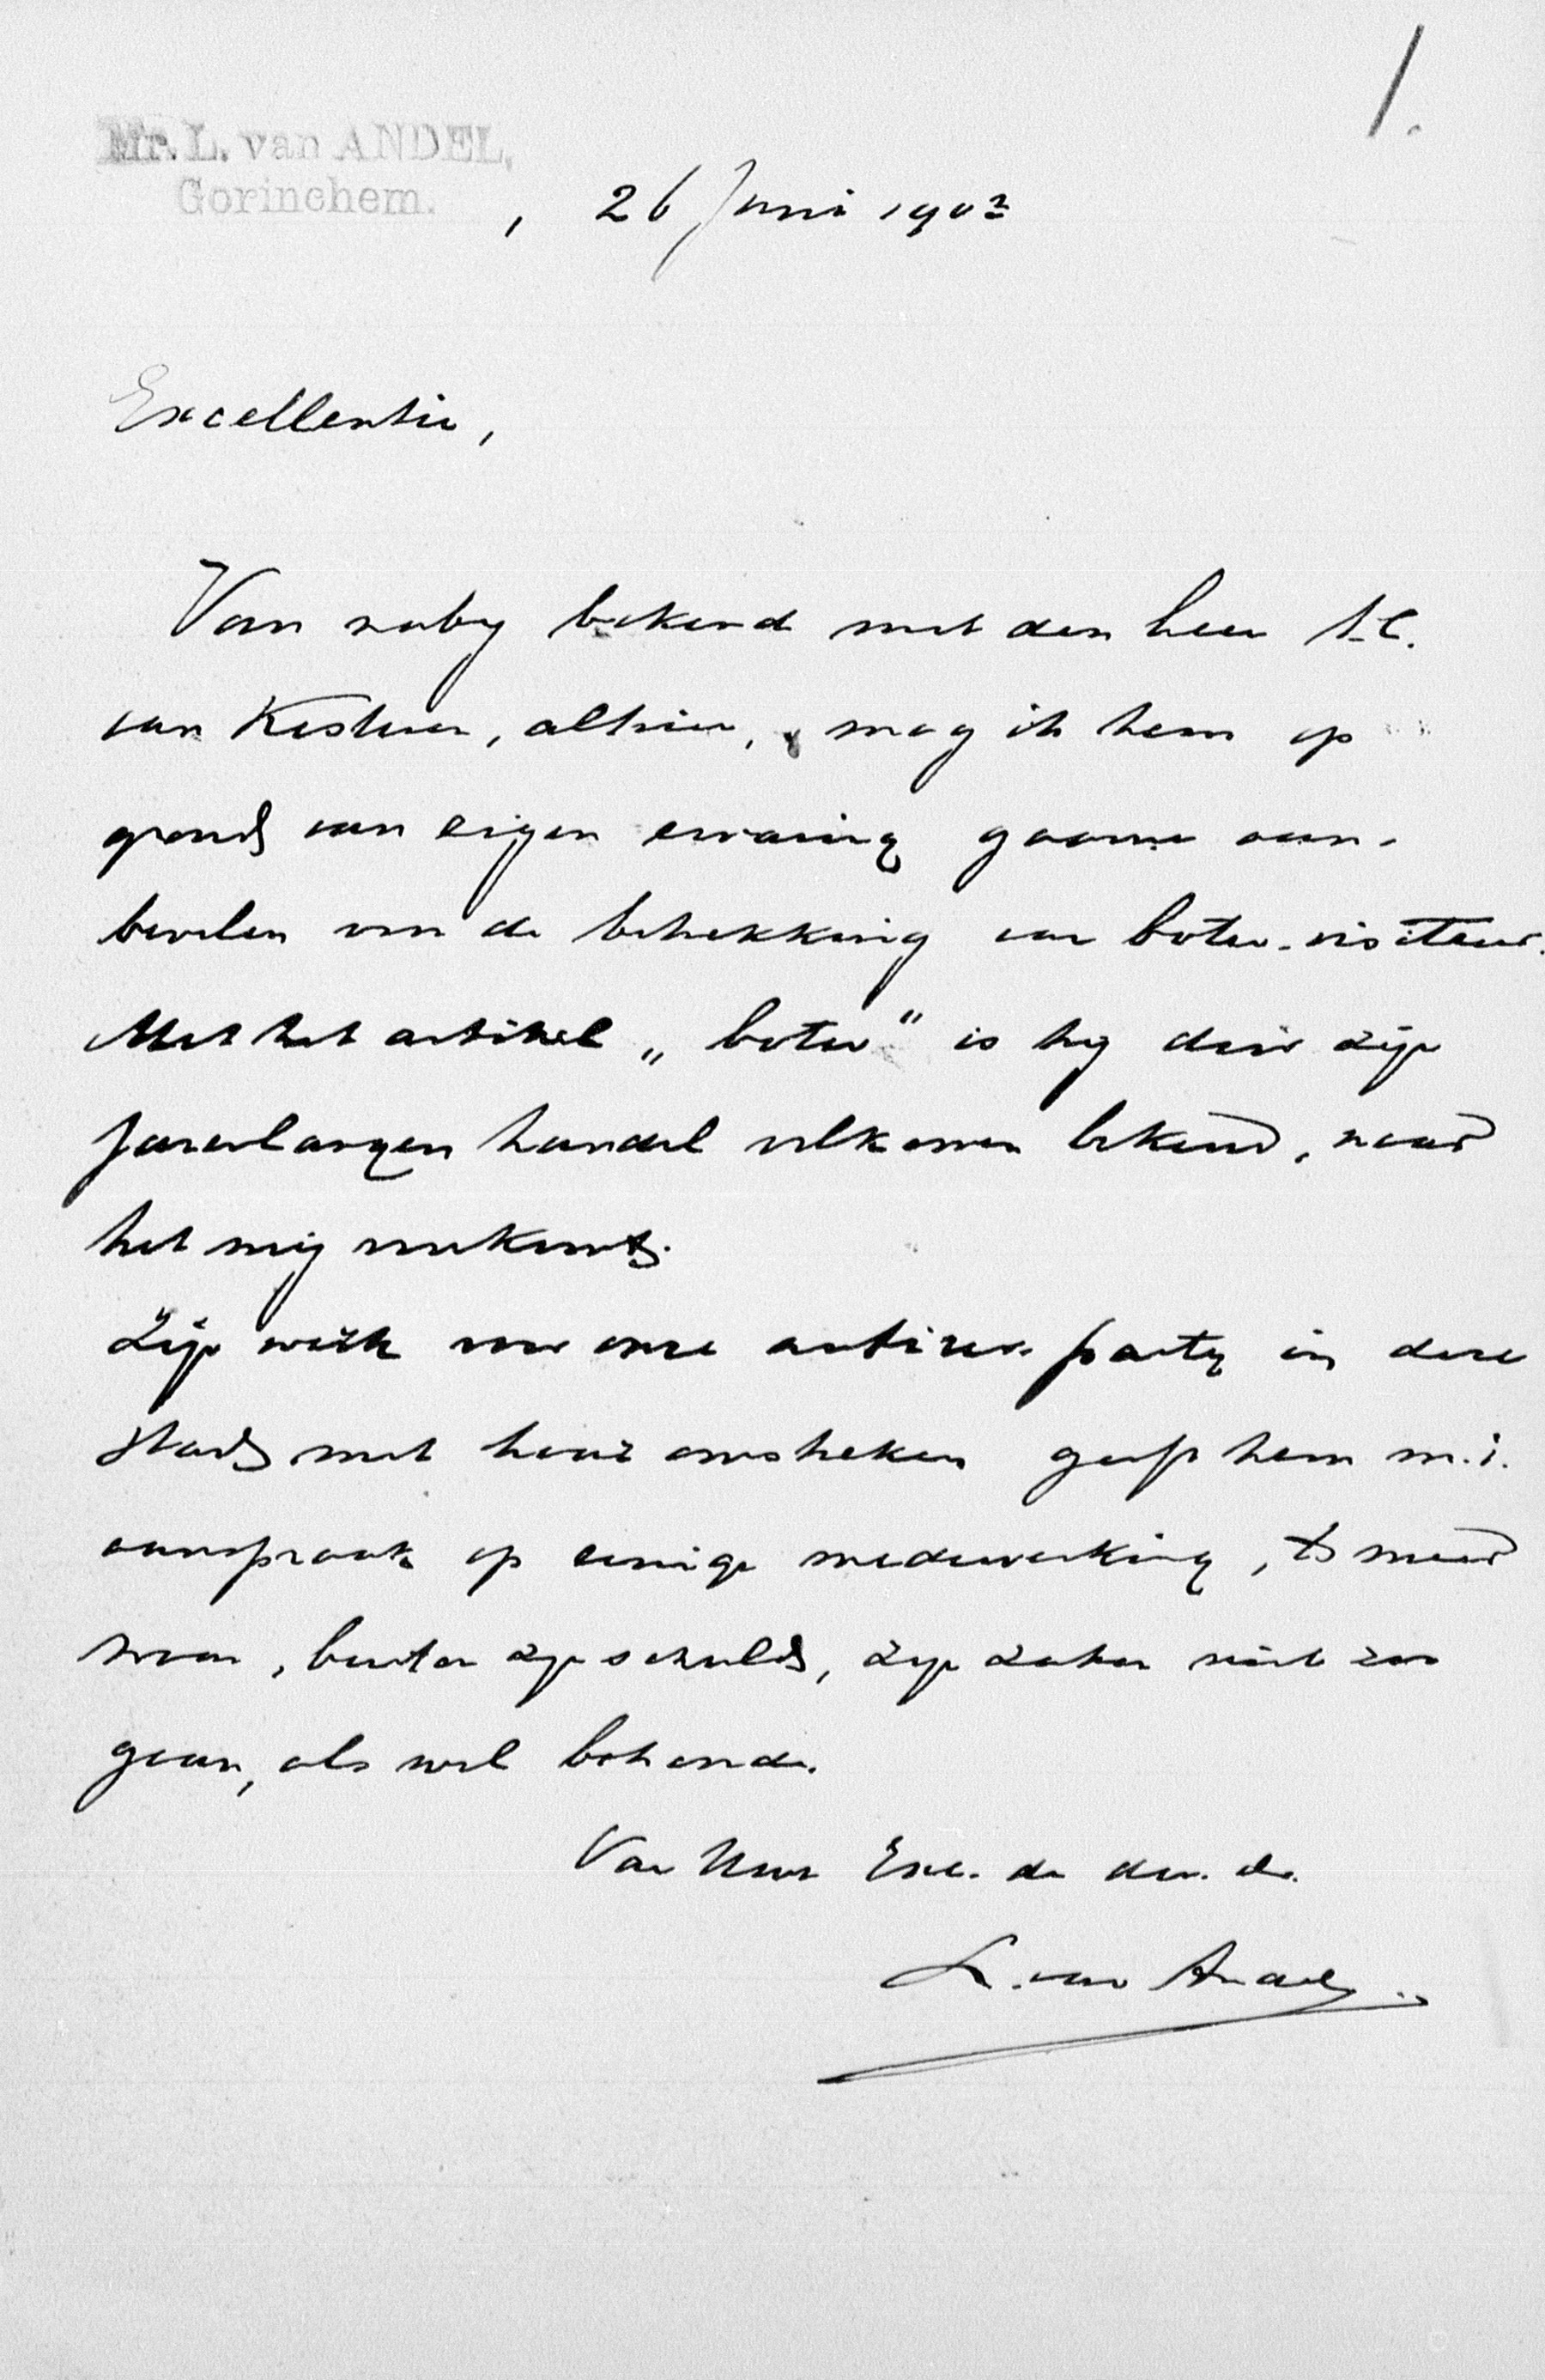 1.
Mr. L. van ANDEL,
Gorinchem.
, 26 Juni 1902
Excellentie,
Van naby bekend met den heer
van Kesteren, alhier, mag ik hem op
grond van eigen ervaring gaarne aan-
bevelen voor de betrekking van boter-visiteur.
Met het artikel „boter" is hy door zijn
jarenlangen handel volkomen bekend, naar
het mij voorkomt.
Zijn werk voor onze antirev. party in deze
stad met hare omstreken geeft hem m.i.
aanspraak op eenige medewerking, te meer
waar, buiten zijn schuld, zijn zaken niet zoo
gaan, als wel behoorde.
Van Uwe Exc. de dw. dr.
L. van Andel